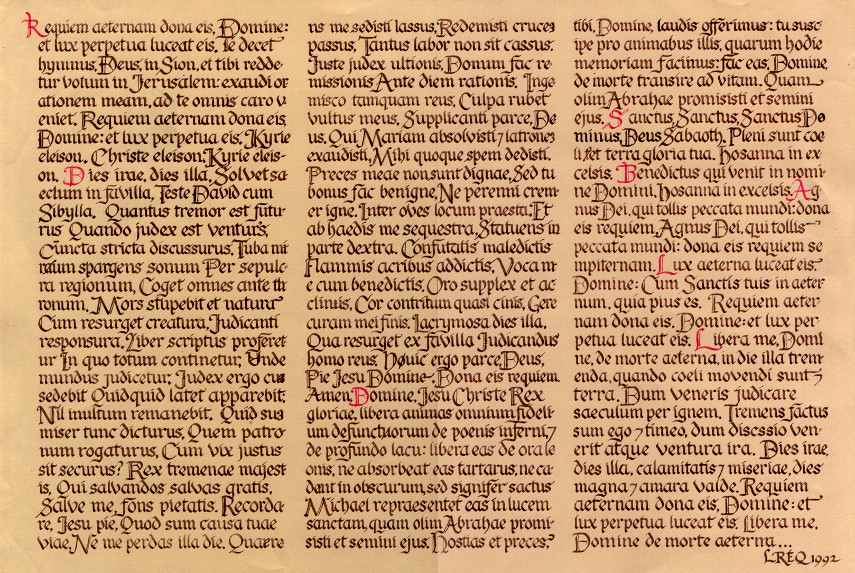 Requiem aeternam dona eis, Domine:
et lux perpetua luceat eis. Te decet
hymnus, Deus, in Sion, et tibi redde-
tur votum in Jerusalem: exaudi or
ationem meam, ad te omnis caro v
eniet. Requiem aeternam dona eis,
Domine: et lux perpetua eis. Kyrie
eleison. Christe eleison. Kyrie eleis-
on. Dies irae, dies illa, Solvet sa
eclum in favilla, Teste David cum
Sibylla. Quantus tremor est futu
rus Quando judex est venturs,
Cuncta stricta discussurus. Tuba mi
rum spargens sonum Per sepulc
ra regionum, Coget omnes ante th
ronum. Mors stupebit et natura
Cum resurget creatura, Judicanti
responsura. Liber scriptus proferet
ur In quo totum continetur, Unde
mundus judicetur. Judex ergo cu
sedebit Quidquid latet apparebit:
Nil inultum remanebit. Quid sus
miser tunc dicturus, Quem patro
num rogaturus, Cum vix justus
sit securus? Rex tremenae majest
is, Qui salvandos salvas gratis,
Salve me, fons pietatis. Recorda
re, Jesu pie, Quod sum causa tuae
viae, Ne me perdas illa die. Quaere
ns me sedisti lassus, Redemisti cruces
passus, Tantus labor non sit cassus.
Juste judex ultionis, Donum fac re
missionis Ante diem rationis. Inge
misco tamquam reus, Culpa rubet
vultus meus, Supplicanti parce, De
us. Qui Mariam absolvisti ⁊ latrones
exaudisti, Mihi quoque spem dedisti.
Preces meae non sunt dignae, Sed tu
bonus fac benigne, Ne perenni crem
er igne. Inter oves locum praesta, Et
ab haedis me sequestra, Statuens in
parte dextra. Confutatis maledictis
Flammis acribus addictis, Voca m
e cum benedictis. Oro supplex et ac
clinis, Cor contritum quasi cinis, Gere
curam mei finis. Lacrymosa dies illa,
Qua resurget ex favilla Judicandus
homo reus. Huic ergo parce, Deus,
Pie Jesu Domine. Dona eis requiem.
Amen. Domine, Jesu Christe Rex
gloriae, libera animas omnium fideli-
um defunctuorum de poenis inferni, ⁊
de profundo lacu: libera eas de ora le
onis, ne absorbeat eas tartarus, ne ca-
dant in obscurum, sed signifer sactus
Michael repraesentet eas in lucem
sanctam, quam olim Abrahae promi-
sisti et semini ejus. Hostias et preces,
tibi, Domine, laudis offerimus: tu susc
ipe pro animabus illis, quarum hodie
memoriam facimus: fac eas, Domine,
de morte transire ad vitam. Quam
olim Abrahae promisisti et semini
ejus. Sanctus, Sanctus, Sanctus Do
minus, Deus Sabaoth. Pleni sunt coe
li et terra gloria tua. Hosanna in ex
celsis. Benedictus qui venit in nomi-
ne Domini, Hosanna in excelsis. Ag
nus Dei, qui tollis peccata mundi: dona
eis requiem. Agnus Dei, qui tollis
peccata mundi: dona eis requiem se
mpiternam. Lux aeterna luceat eis,
Domine: Cum Sanctis tuis in aeter
num, quia pius es. Requiem aeter-
nam dona eis, Domine: et lux per
petua luceat eis. Libera me, Domi
ne, de morte aeterna, in die illa trem
enda, quando coeli movendi sunt ⁊
terra. Dum veneris judicare
saeculum per ignem. Tremens factus
sum ego ⁊ timeo, dum discssio ven-
erit atque ventura ira. Dies irae,
dies illa, calamitatis ⁊ miseriae, dies
magna ⁊ amara valde. Requiem
aeternam dona eis, Domine: et
lux perpetua luceat eis. Libera me,
Domine de morte aeterna...
LREQ 1992